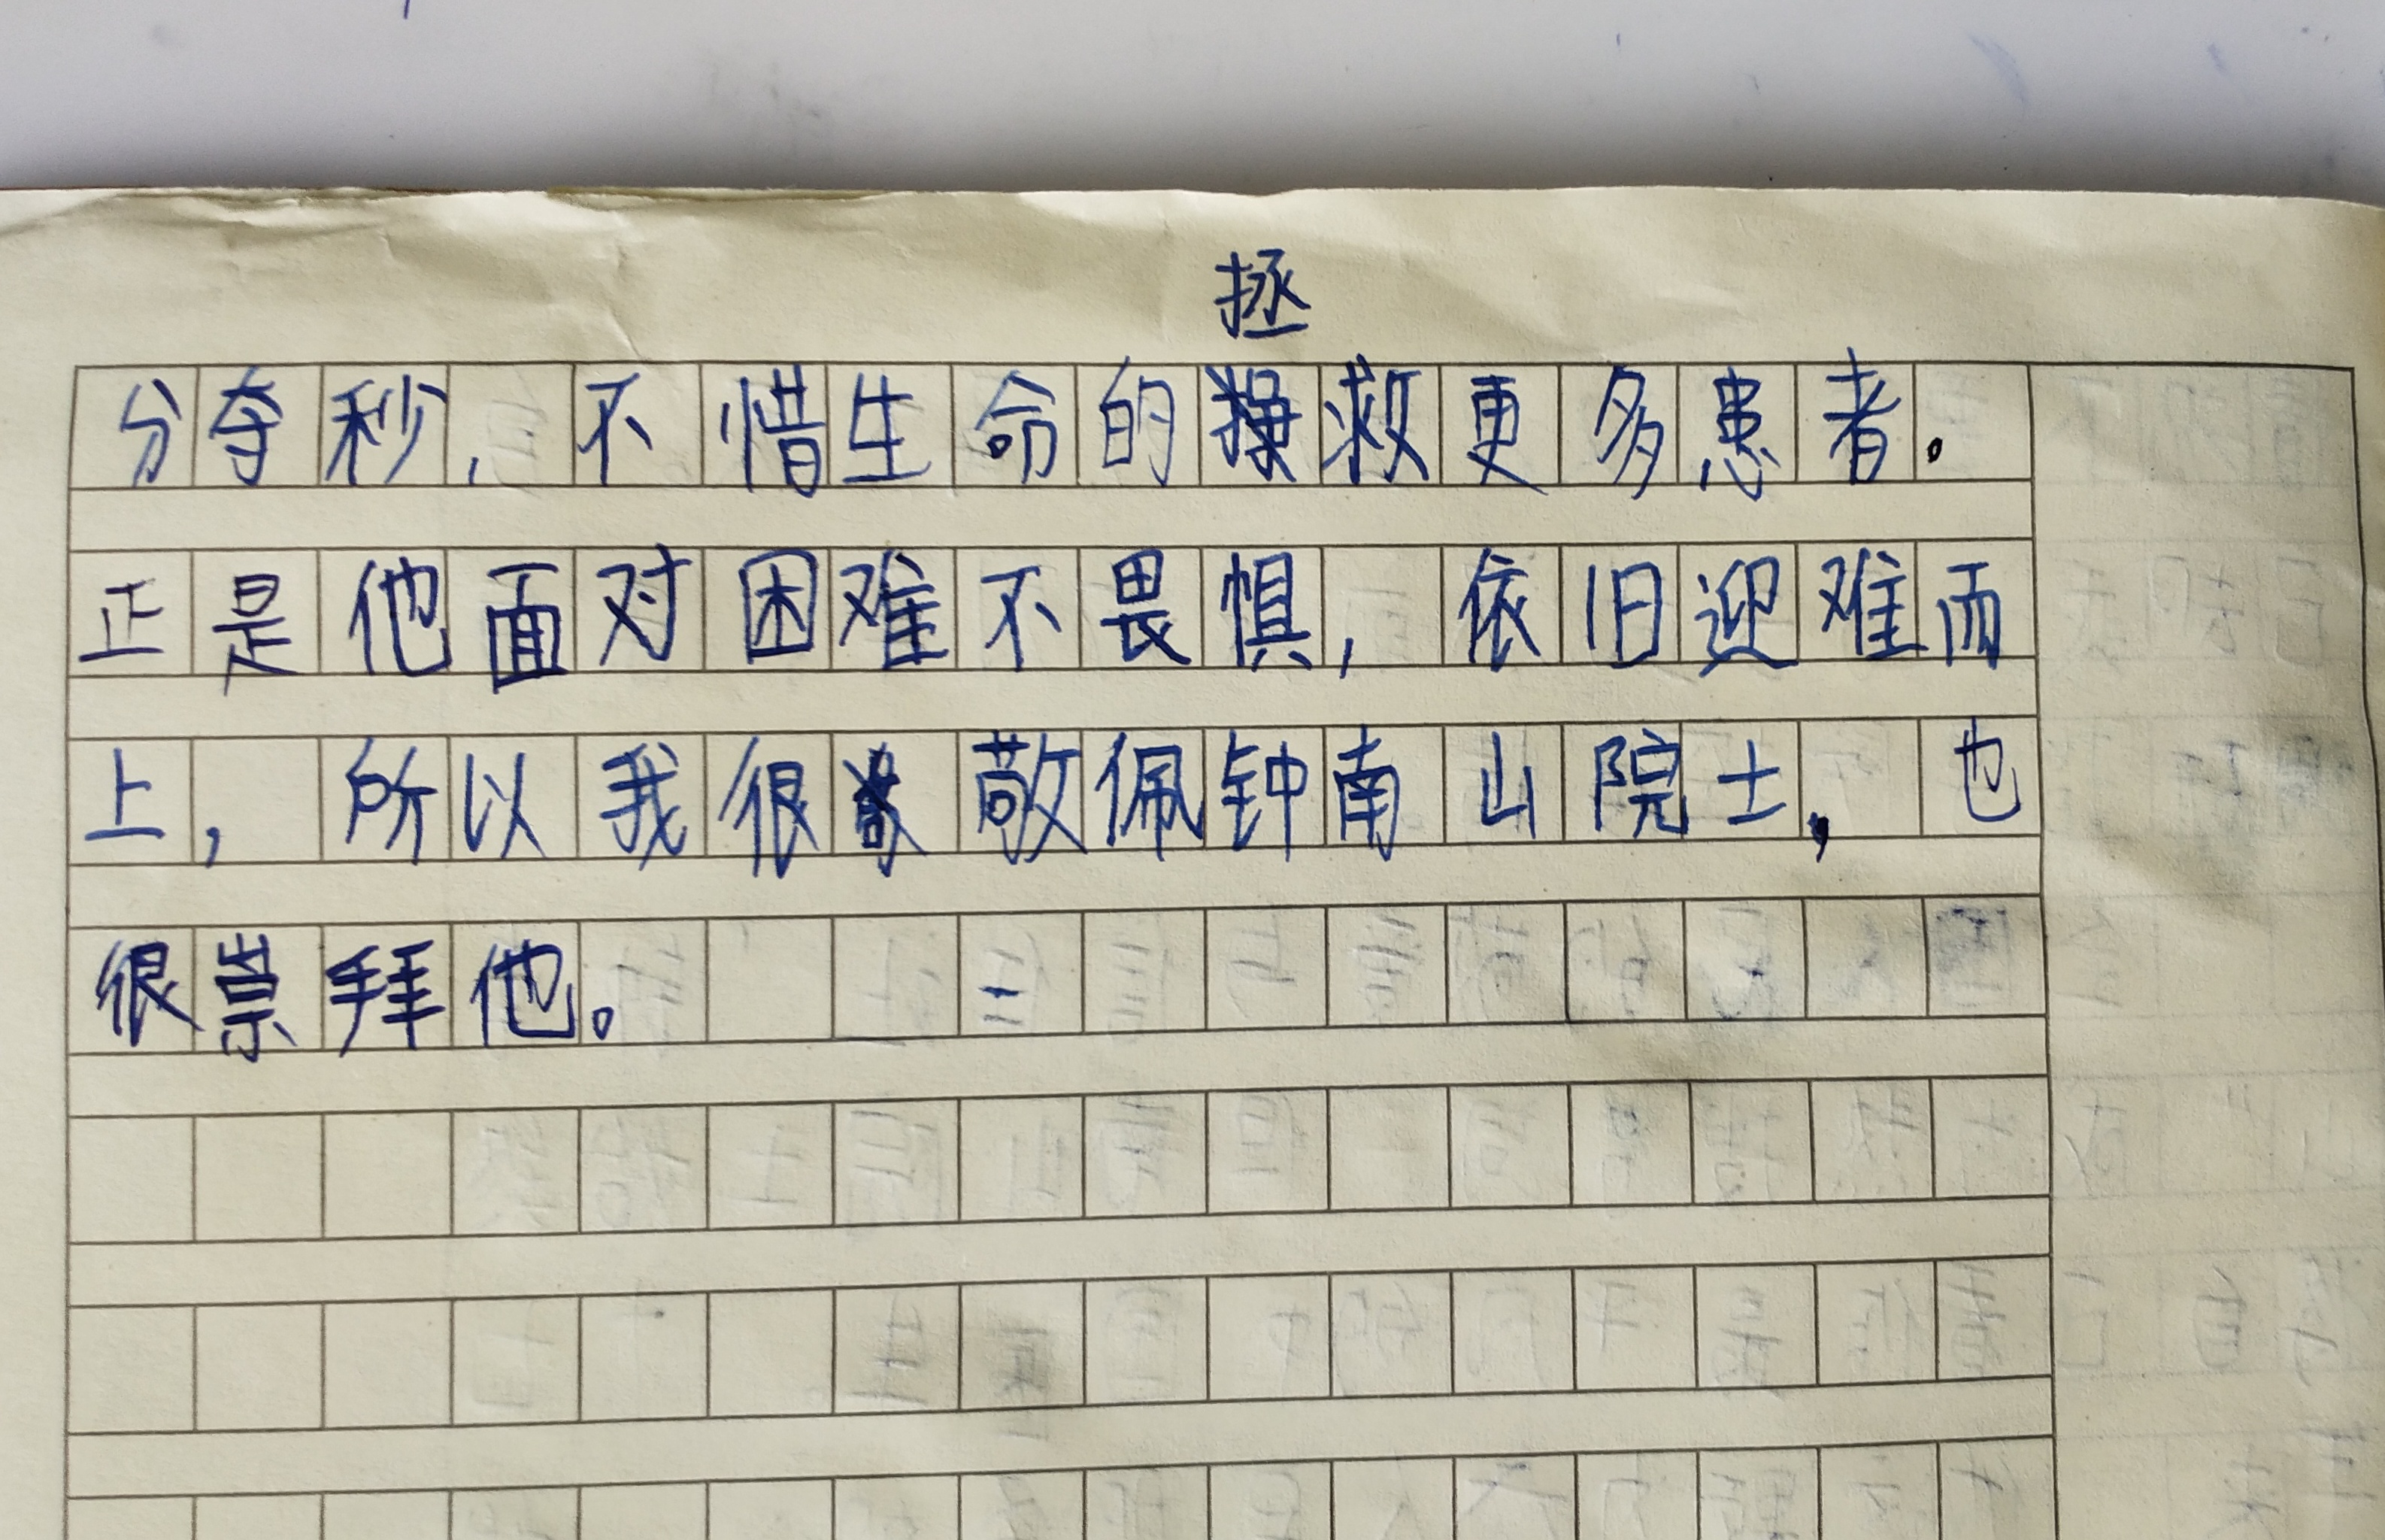 拯
分夺秒,不惜生命的救更多患者。
正是他面对困难不畏惧,依旧迎难而
上,所以我很敬佩钟南山院士,也
很崇拜他。